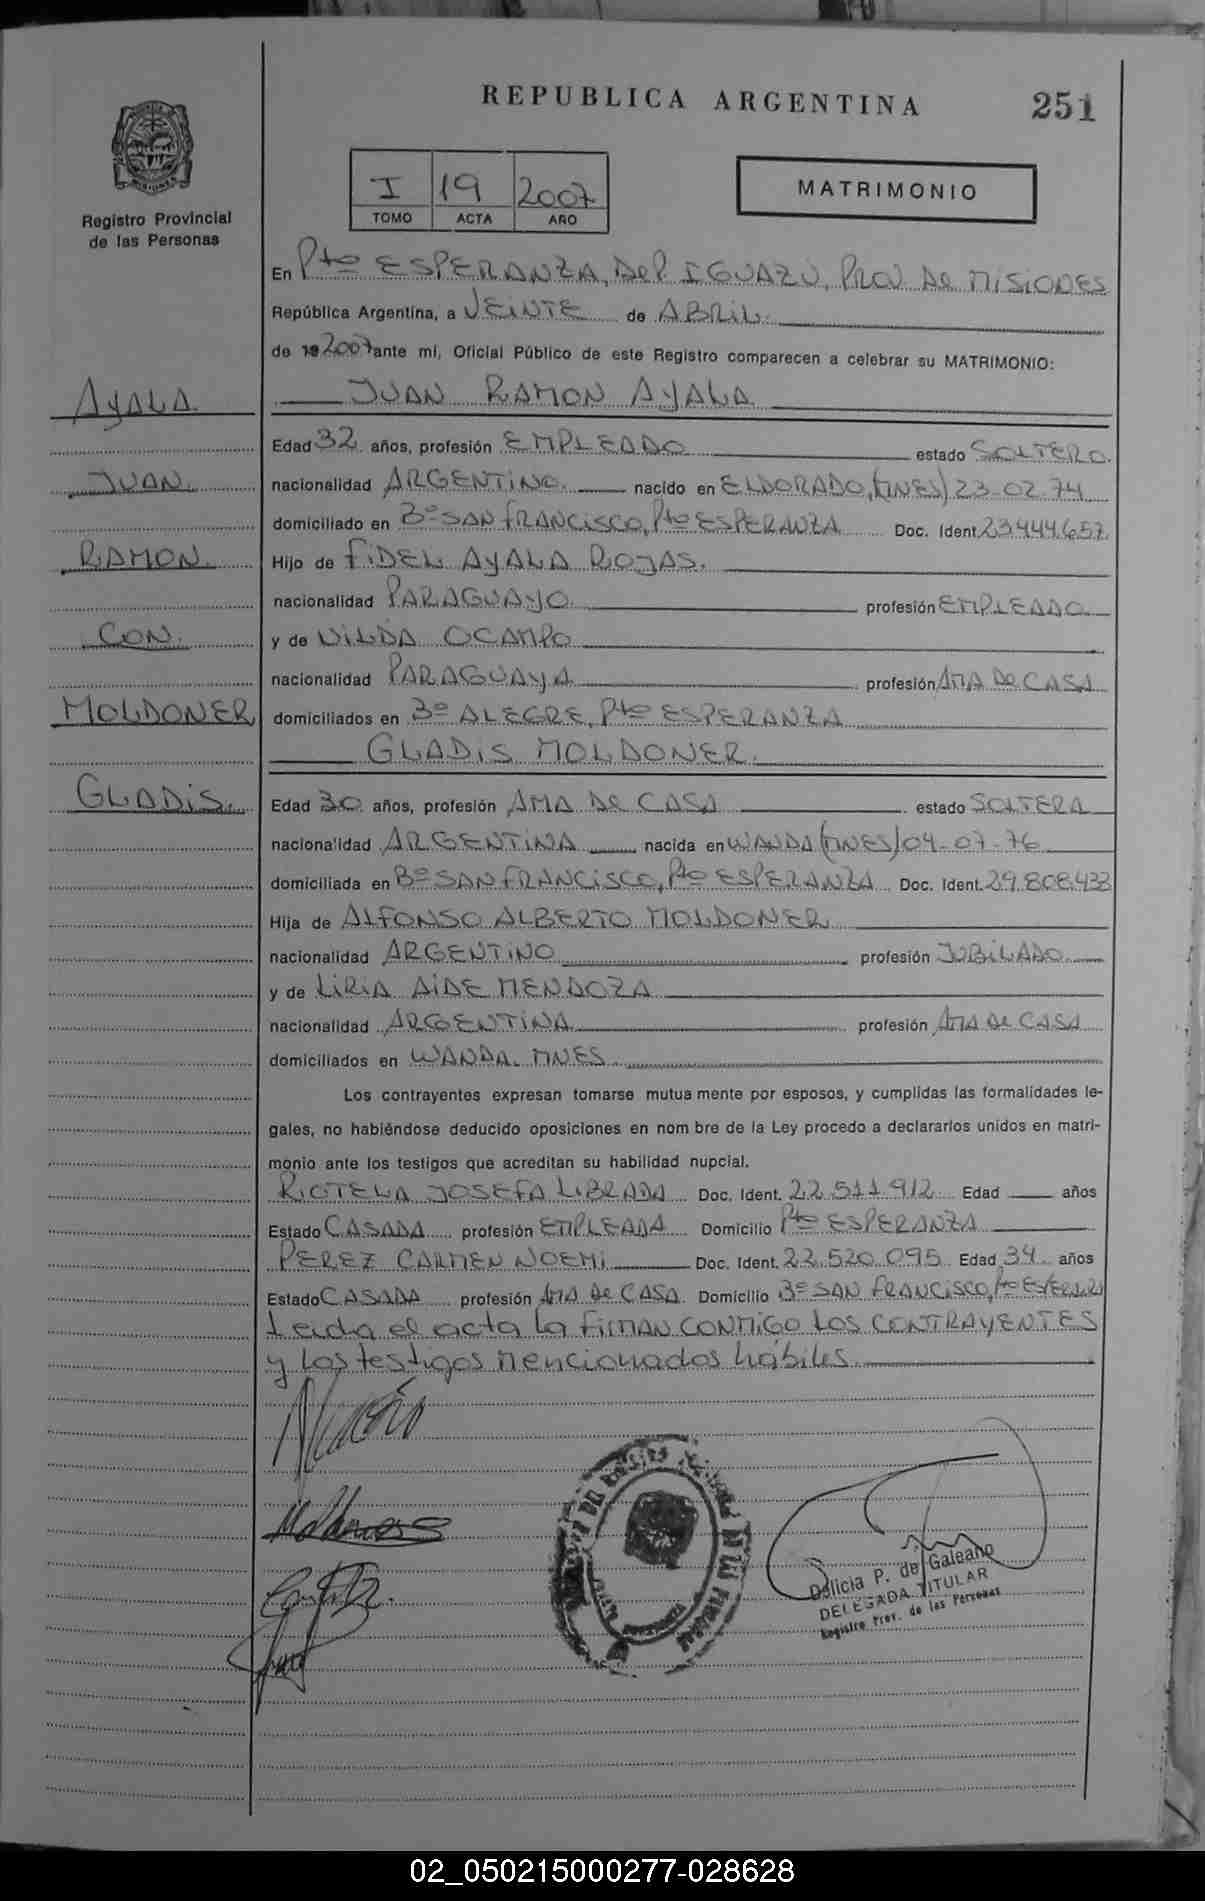 REPUBLICA ARGENTINA
251
I 19 2007
TOMO ACTA AÑO
MATRIMONIO
MISIONES
Registro Provincial
de las Personas
En Pto ESPERANZA, Dep. IGUAZU, Prov De MiSiONES
República Argentina, a VEiNTE de ABRiL.
de 19 2007 ante mí, Oficial Público de este Registro comparecen a celebrar su MATRIMONIO:
AyALA
JUAN RAMON AyALA
Edad 32 años, profesión EMPLEADO estado SOLTERO.
JUAN.
nacionalidad ARGENTiNO. nacido en ELDORADO, (MNES) 23-02-74
domiciliado en Bº SAN fRANCiSCO, Pto ESPERANZA Doc. Ident. 23.444.657.
RAMON.
Hijo de FiDEL AyALA ROJAS.
nacionalidad PARAGUAYO. profesión EMPLEADO
CON.
y de ViLDA OCAMPO
nacionalidad PARAGUAyA profesión AMA De CASA
MOLDONER
domiciliados en Bº ALEGRE, Pto ESPERANZA
GLADiS MOLDONER.
GLADiS.
Edad 30 años, profesión AMA De CASA estado SOLTERA
nacionalidad ARGENTiNA nacida en WANDA (MNES) 04-07-76
domiciliada en Bº SAN FRANCiSCO, Pto ESPERANZA Doc. Ident. 29.808.433
Hija de ALFONSO ALBERTO MOLDONER
nacionalidad ARGENTiNO profesión JUBiLADO
y de LiRiA AiDE MENDOZA
nacionalidad ARGENTiNA profesión AMA De CASA
domiciliados en WANDA. MNES.
Los contrayentes expresan tomarse mutua mente por esposos, y cumplidas las formalidades le-
gales, no habiéndose deducido oposiciones en nom bre de la Ley procedo a declararlos unidos en matri-
monio ante los testigos que acreditan su habilidad nupcial.
RIOTELA JOSEFA LiBRADA Doc. Ident. 22.511.912 Edad años
Estado CASADA profesión EMPLEADA Domicilio Pto ESPERANZA
PEREZ CARMEN NOEMi Doc. Ident. 22.520.095 Edad 34 años
Estado CASADA profesión AMA De CASA Domicilio Bº SAN FRANCiSCO, Pto
Leida el acta la FiRMAN CONMiGO LOS CONTRAYENTES
y Los testigos Mencionados hábiles.
Delicia P. de Galeano
DELEGADA TITULAR
Registro Prov. de las Personas
02_050215000277-028628